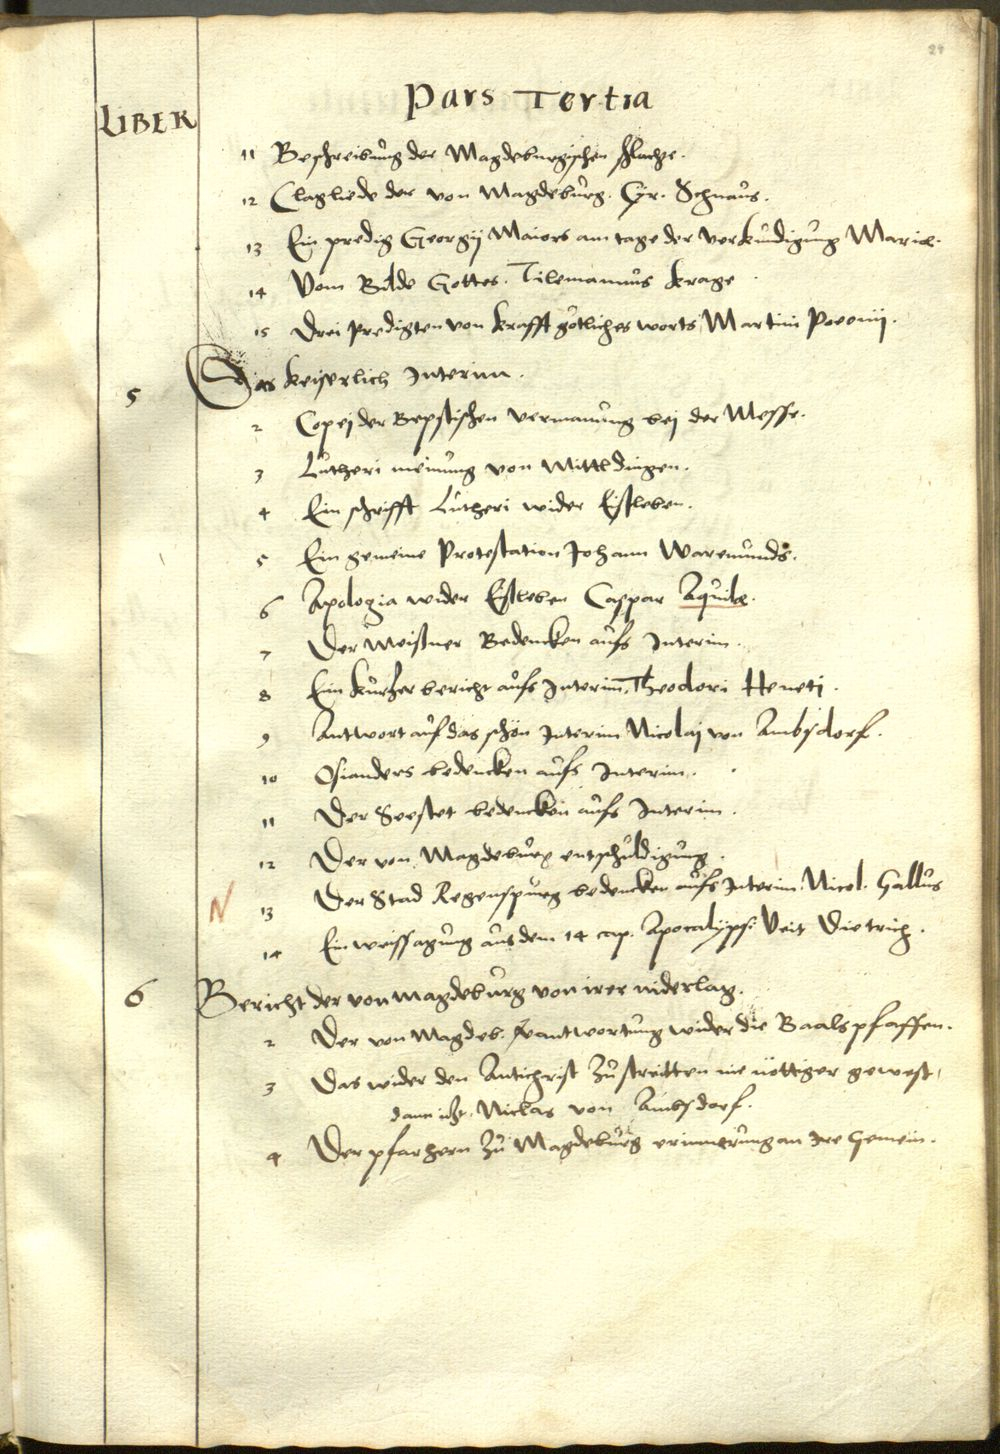 24
Pars Tertia
LIBER
11 Beschreibung der Magdeburgischen schlacht.
12 Clagliede der von Magdeburg. Cyr. Schnaus.
13 Ein predig Georgij Maiors am tage der verkundigung Mariæ.
14 Vom Bilde Gottes. Tilemannus Krage
15 Drei Predigten von krafft götliches worts Martini
5 Das keiserlich Interim.
2 Copej der Bepstischen vermanung bej der Messe.
3 Lutheri meinung von Mitteldingen.
4 Ein schrifft Lutheri wider Eisleben.
5 Ein gemeine Protestation Johann Waremunds.
6 Apologia wider Eisleben Caspar Aquilæ.
7 Der Meissner Bedencken aufs Interim.
8 Ein kurtzer bericht aufs Interim, Theodori Heneti.
9 Antwort auf das schön Interim Nicolaj von Ambsdorf.
10 Osianders bedencken aufs Interim.
11 Der Seestet bedencken aufs Interim.
12 Der von Magdeburg entschuldigung.
N 13 Der Stad Regenspurg bedencken aufs Interim Nicol. Gallus
14 Ein weissagung aus dem 14 cap. Apocalyps: Veit Dietrich.
6 Bericht der von magdeburg von irer niderlag.
2 Der von Magdeb. verantwortung wider die Baalspfaffen.
3 Das wider den Antichrist zu streitten nie nöttiger gewest,
dann itzt, Niclas von Ambsdorf.
4 Der pfarhern zu Magdeburg erinnerung an ire Gemein.